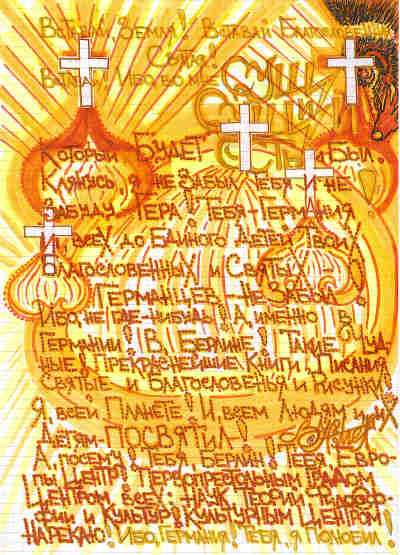 Вставай, Земля! Вставай Благословенная
Святая!
Вставай! Ибо, во мне
СУЩ
Который Будет Есть и Был.
Клянусь, я не Забыл Тебя и не
Забуду Гера! Тебя-Германия!
И, всех до Единого Детей Твоих
Благословенных и Святых –
Германцев – не Забой!
Ибо, не где-нибудь! А, именно в
Германии! В, Берлине! Такие Чуд-
ные! Прекраснейшие Книги, Писания
Святые – и Благословенья и Рисунки!
Я, всей Планете! И, всем Людям и их
Детям – ПОСВЯТИЛ!
А, посему! Тебя Берлин! Тебя, Евро-
пы Центр! Первопрестольным Градом
Центром всех: Наук, Теософии Филосо-
фии и Культур! Культурным Центром!
НАРЕКАЮ! Ибо, Германия! Тебя, я Полюбил!